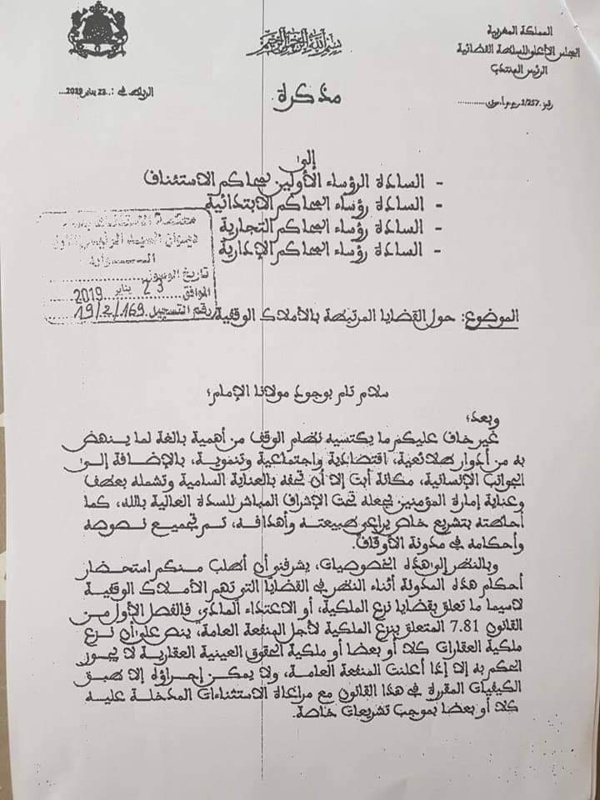 المملكة المغربية
المجلس الأعلى للسلطة القضائية
الرئيس المنتدب
بسم الله الرحمن الرحيم
الرباط في: 22 يناير 2019
مذكرة
إلى
- السادة الرؤساء الأولين بمحاكم الاستئناف
- السادة رؤساء المحاكم الابتدائية
- السادة رؤساء المحاكم التجارية
- السادة رؤساء المحاكم الإدارية
محكمة الاستئناف
ديوان السيد الرئيس الأول
تاريخ الوصول
الموافق 23 يناير 2019
رقم التسجيل 169/2/19
الموضوع: حول القضايا المرتبطة بالأملاك الوقفية
سلام تام بوجود مولانا الإمام؛
وبعد؛
غير خاف عليكم ما يكتسيه نظام الوقف من أهمية بالغة لما ينهض
به من أدوار طلائعية، اقتصادية واجتماعية وتنموية، بالإضافة إلى
الجوانب الإنسانية، مكانة أبت إلا أن تحفه بالعناية السامية وتشمله بعطف
وعناية إمارة المؤمنين بجعله تحت الإشراف المباشر للسدة العالية بالله، كما
أحاطته بتشريع خاص يراعي طبيعته وأهدافه، تم تجميع نصوصه
وأحكامه في مدونة الأوقاف.
وبالنظر إلى هذه الخصوصيات، يشرفني أن أطلب منكم استحضار
أحكام هذه المدونة أثناء النظر في القضايا التي تهم الأملاك الوقفية
لاسيما ما تعلق بقضايا نزع الملكية، أو الاعتداء المادي فالفصل الأول من
القانون 7.81 المتعلق بنزع الملكية لأجل المنفعة العامة، ينص على أن نزع
ملكية العقارات كلا أو بعضا أو ملكية الحقوق العينية العقارية لا يجوز
الحكم به إلا إذا أعلنت المنفعة العامة، ولا يمكن إجراؤه إلا طبق
الكيفيات المقررة في هذا القانون مع مراعاة الاستثناءات المدخلة عليه
كلا أو بعضا بموجب تشريعات خاصة.